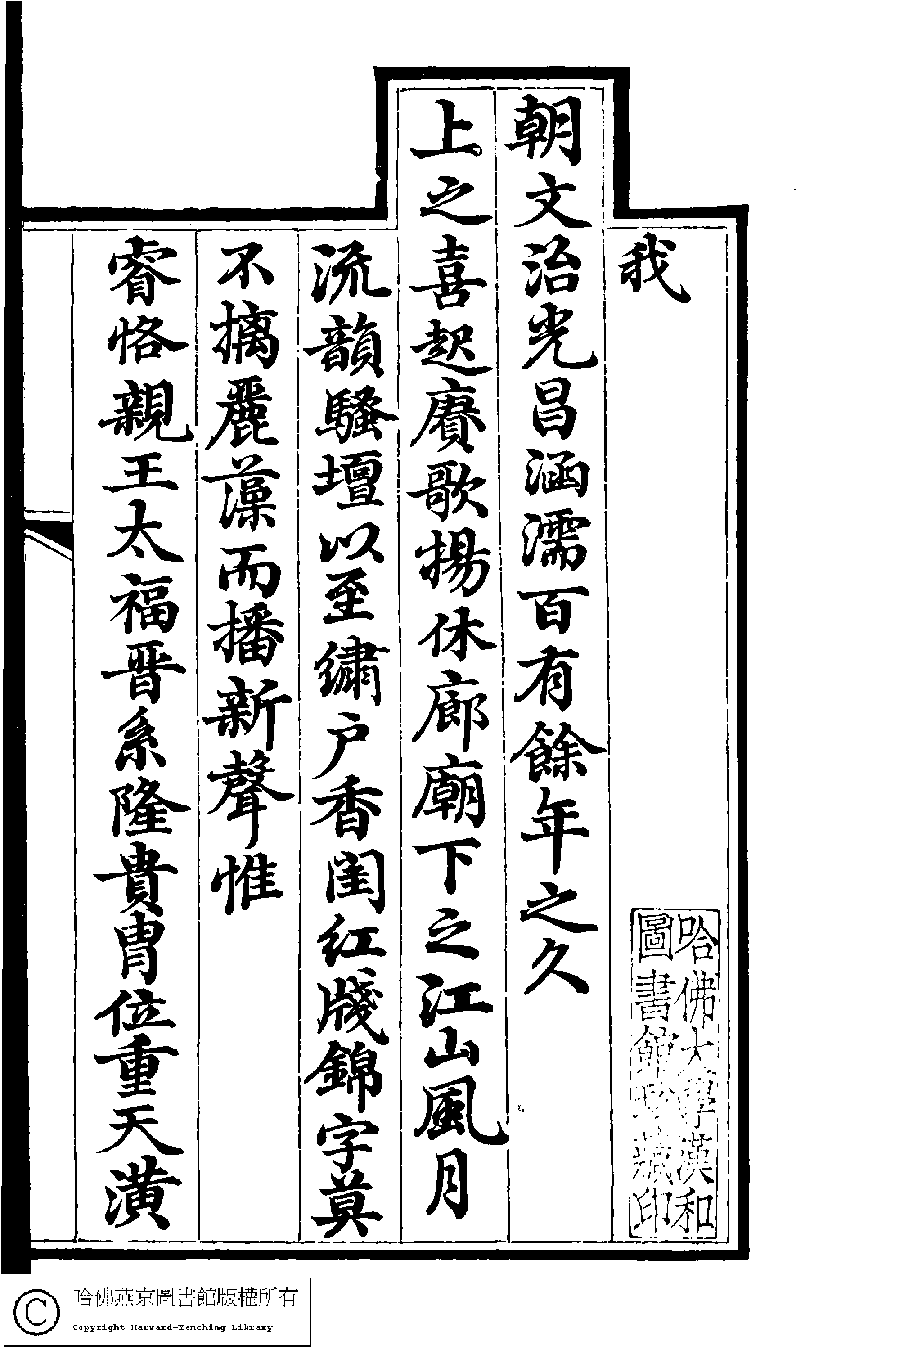 我
朝文治光昌涵濡百有餘年之久
上之喜起賡歌揚休廊廟下之江山風月
流韻騷壇以至繡户香閨紅牋錦字莫
不摛麗藻而播新聲惟
睿恪親王太福晋系隆貴胄位重天潢
哈佛大學漢和
圖書館珍藏印
哈佛燕京圖書館版權所有
Copyright Harvard-Yenching Library